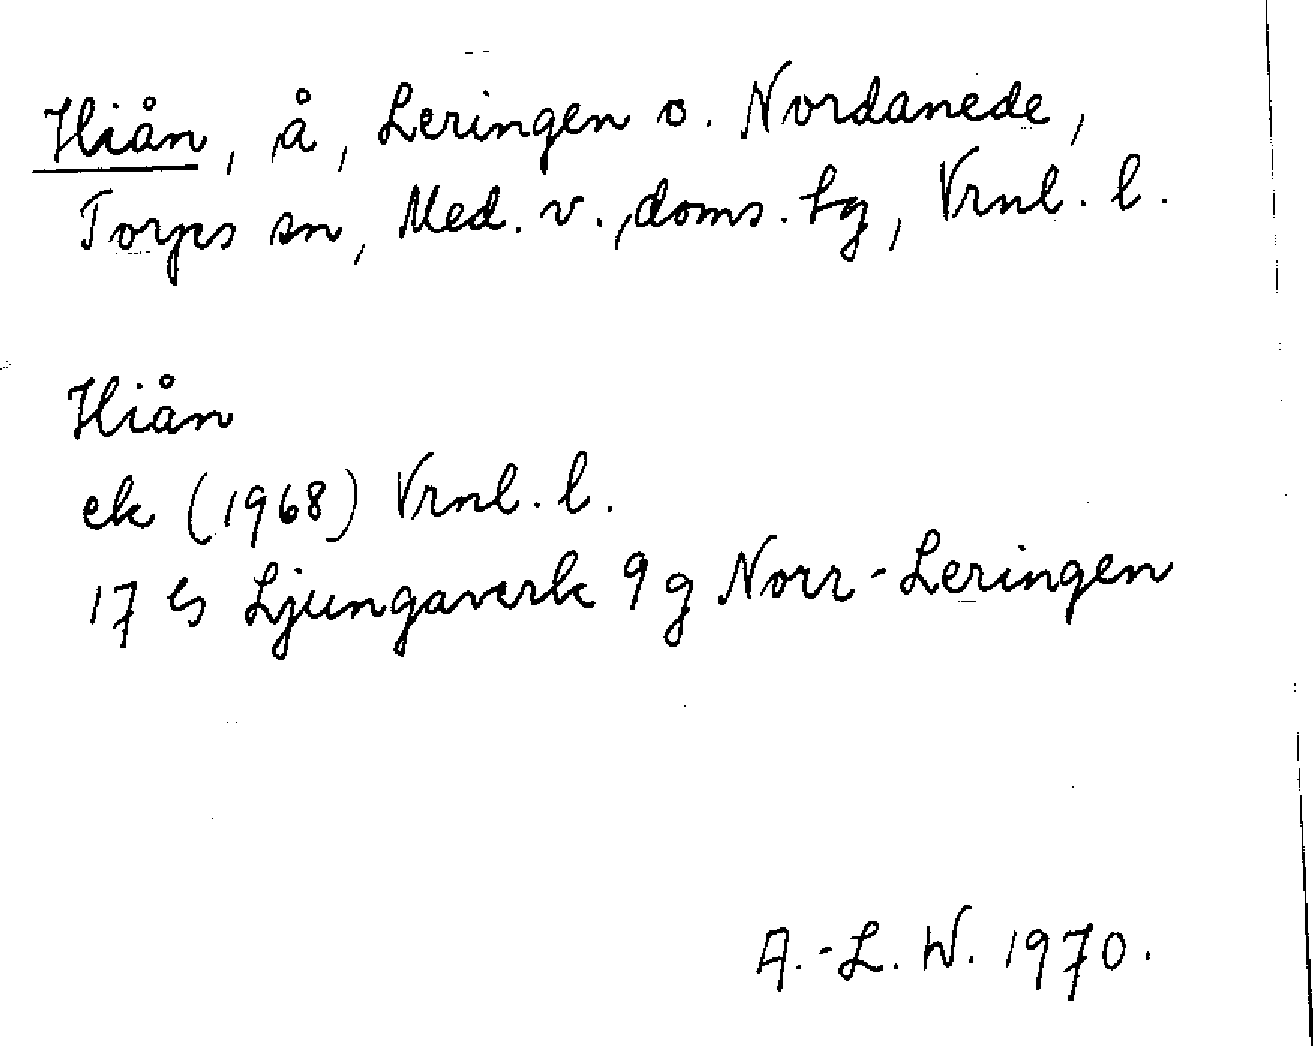 Hiån, å, Leringen o. Nordanede,
Torps sn, Med. v. doms. tg, Vrnl. l.
Hiån
ek (1968) Vrnl. l.
17 G Ljungaverk 9 g Norr-Leringen
A.-L. W. 1970.